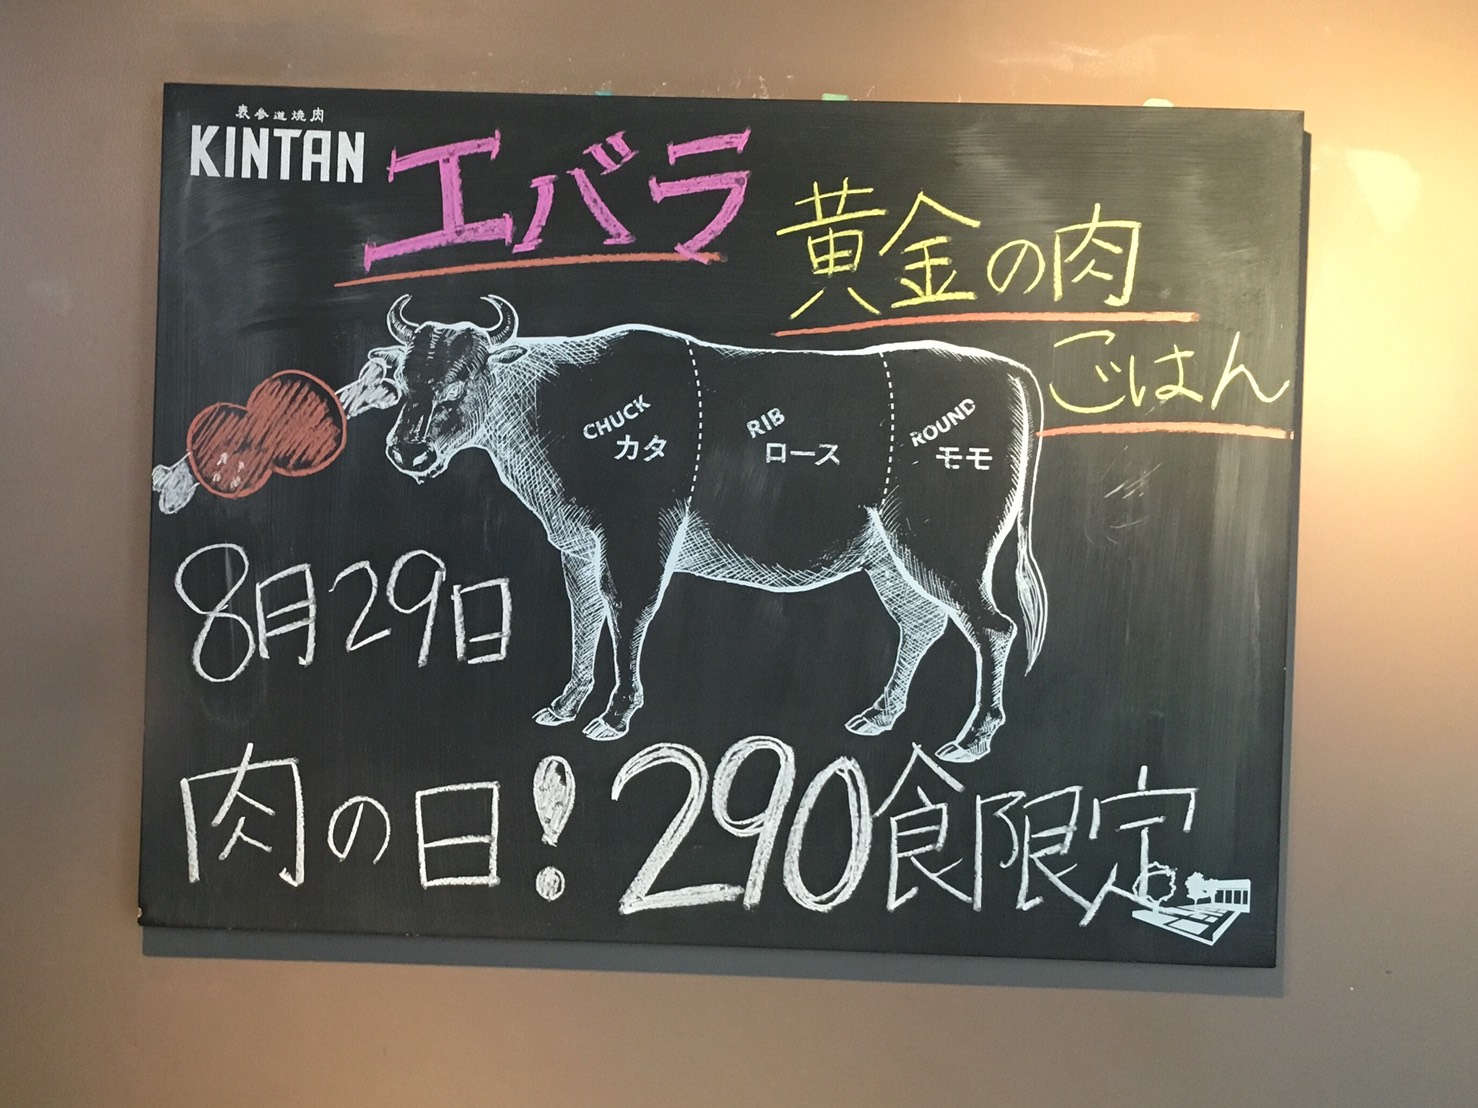 表参道焼肉
KINTAN
エバラ
黄金の肉
ごはん
CHUCK
カタ
RIB
ロース
ROUND
モモ
8月29日
肉の日!290食限定